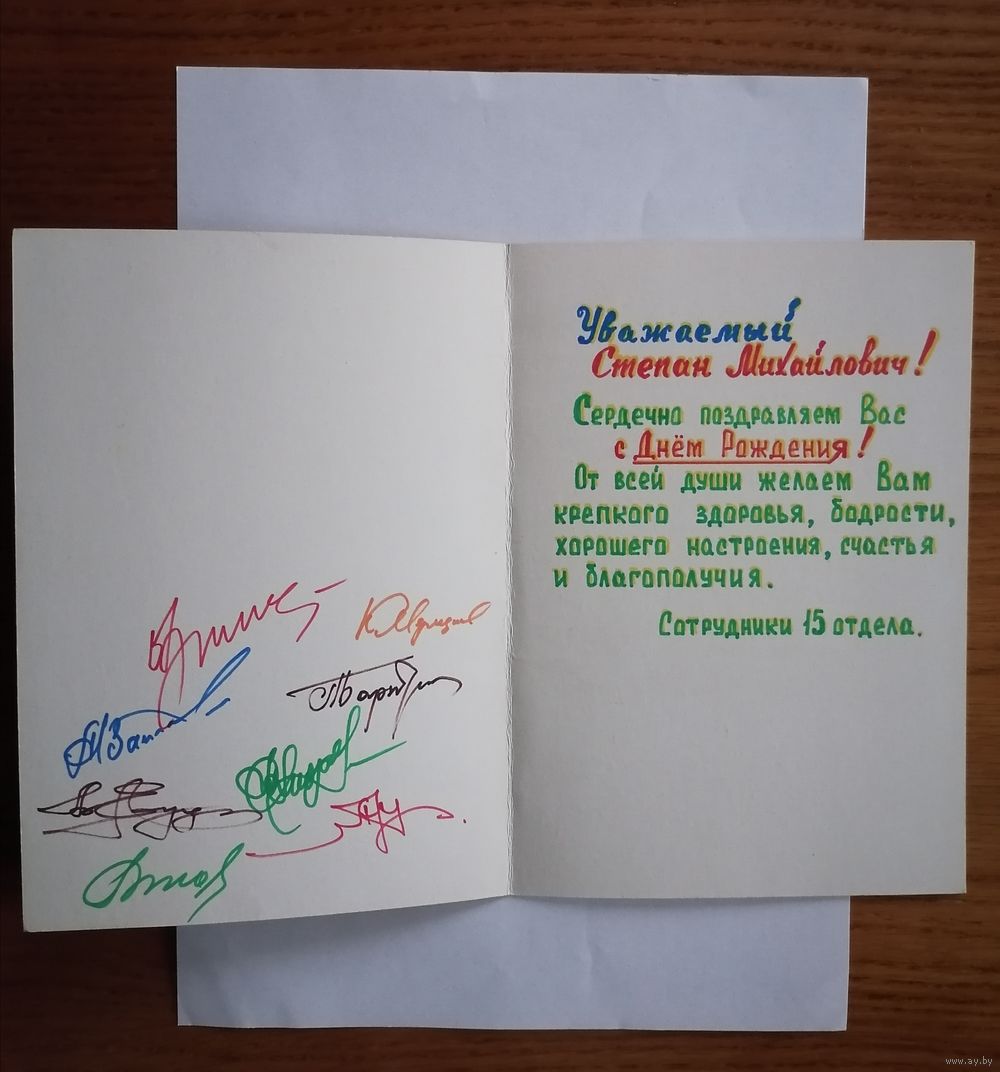 Уважаемый
Степан Михайлович!
Сердечно поздравляем Вас
с Днём Рождения!
От всей души желаем Вам
крепкого здоровья, бодрости,
хорошего настроения, счастья
и благополучия.
Сотрудники 15 отдела.
www.ay.by